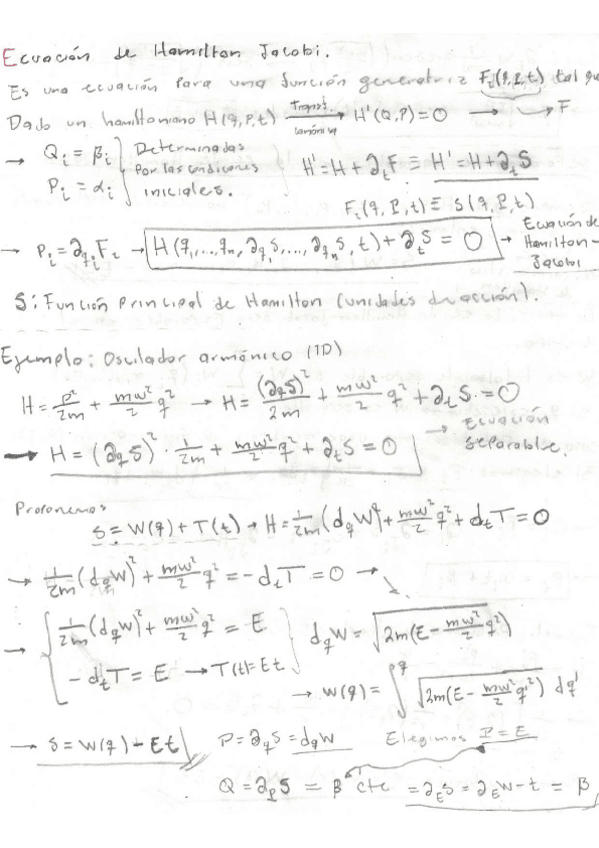 Ecuación de Hamilton Jacobi.
Es una ecuación para una función generatriz F₂(q,P,t) tal qu
Dado un hamiltoniano H(q,p,t) → Transf. canónica H'(Q,P)=0 → → F
→ Qᵢ = βᵢ } Determinadas
Pᵢ = αᵢ } Por las condiciones iniciales.
H' = H + ∂ₜF ≡ H' = H + ∂ₜS
F₂(q,P,t) ≡ S(q,P,t)
→ pᵢ = ∂qᵢF₂ → H(q₁,...,qₙ, ∂q₁S,..., ∂qₙS, t) + ∂ₜS = 0 → Ecuación de Hamilton-Jacobi
S: Función Principal de Hamilton (unidades de acción).
Ejemplo: Oscilador armónico (1D)
H = p²/2m + mω²/2 q² → H = (∂qS)²/2m + mω²/2 q² + ∂ₜS = 0
→ H = (∂qS)² · 1/2m + mω²/2 q² + ∂ₜS = 0 → Ecuación separable.
Proponemos
S = W(q) + T(t) → H = 1/2m (dqW)² + mω²/2 q² + dₜT = 0
→ 1/2m (dqW)² + mω²/2 q² = -dₜT = 0 →
→ { 1/2m (dqW)² + mω²/2 q² = E } dqW = √(2m(E - mω²/2 q²))
- dₜT = E → T(t) = Et
→ W(q) = ∫^q √(2m(E - mω²/2 q'²)) dq'
→ S = W(q) - Et
P = ∂qS = dqW Elegimos P = E
Q = ∂PS = β cte = ∂ES = ∂EW - t = β